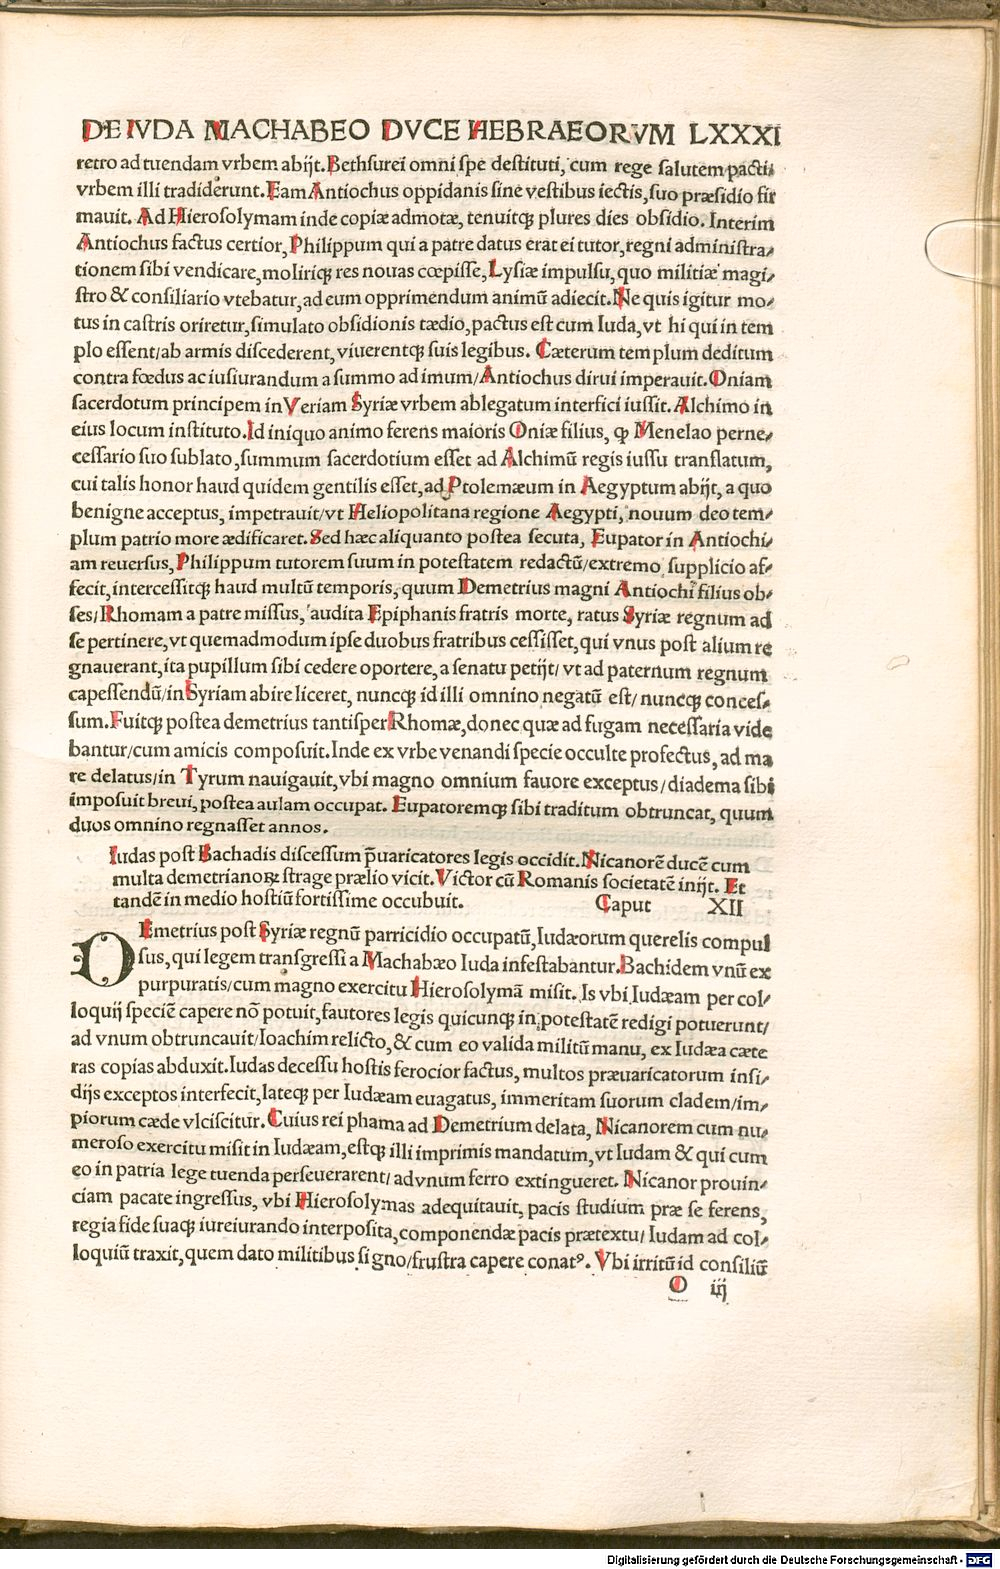 DE IVDA MACHABEO DVCE HEBRAEORVM LXXXI
retro ad tuendam vrbem abijt. Bethsurei omni spe destituti, cum rege salutem pacti/
vrbem illi tradiderunt. Eam Antiochus oppidanis sine vestibus iectis, suo præsidio fir
mauit. Ad Hierosolymam inde copiæ admotæ, tenuitqꝫ plures dies obsidio. Interim
Antiochus factus certior, Philippum qui a patre datus erat ei tutor, regni administra/
tionem sibi vendicare, moliriqꝫ res nouas cœpisse, Lysiæ impulsu, quo militiæ magi/
stro & consiliario vtebatur, ad eum opprimendum animū adiecit. Ne quis igitur mo/
tus in castris oriretur, simulato obsidionis tædio, pactus est cum Iuda, vt hi qui in tem
plo essent/ab armis discederent, viuerentqꝫ suis legibus. Cæterum templum deditum
contra fœdus ac iusiurandum a summo ad imum/Antiochus dirui imperauit. Oniam
sacerdotum principem in Veriam Syriæ vrbem ablegatum interfici iussit. Alchimo in
eius locum instituto. Id iniquo animo ferens maioris Oniæ filius, ꝙ Menelao perne/
cessario suo sublato, summum sacerdotium esset ad Alchimū regis iussu translatum,
cui talis honor haud quidem gentilis esset, ad Ptolemæum in Aegyptum abijt, a quo
benigne acceptus, impetrauit/vt Heliopolitana regione Aegypti, nouum deo tem/
plum patrio more ædificaret. Sed hæc aliquanto postea secuta, Eupator in Antiochi/
am reuersus, Philippum tutorem suum in potestatem redactū/extremo supplicio af/
fecit, intercessitqꝫ haud multū temporis, quum Demetrius magni Antiochi filius ob/
ses/Rhomam a patre missus, audita Epiphanis fratris morte, ratus Syriæ regnum ad
se pertinere, vt quemadmodum ipse duobus fratribus cessisset, qui vnus post alium re
gnauerant, ita pupillum sibi cedere oportere, a senatu petijt/ vt ad paternum regnum
capessendū/in Syriam abire liceret, nuncqꝫ id illi omnino negatū est/ nuncqꝫ conces/
sum. Fuitqꝫ postea demetrius tantisper Rhomæ, donec quæ ad fugam necessaria vide
bantur/cum amicis composuit. Inde ex vrbe venandi specie occulte profectus, ad ma
re delatus/in Tyrum nauigauit, vbi magno omnium fauore exceptus/diadema sibi
imposuit breui, postea aulam occupat. Eupatoremqꝫ sibi traditum obtruncat, quum
duos omnino regnasset annos.
Iudas post Bachadis discessum p̄uaricatores legis occidit. Nicanorē ducē cum
multa demetrianoꝝ strage prælio vicit. Victor cū Romanis societatē inijt. Et
tandē in medio hostiū fortissime occubuit. Caput XII
DEmetrius post Syriæ regnū parricidio occupatū, Iudæorum querelis compul
sus, qui legem transgressi a Machabæo Iuda infestabantur. Bachidem vnū ex
purpuratis/cum magno exercitu Hierosolymā misit. Is vbi Iudæam per col/
loquij speciē capere nō potuit, fautores legis quicunqꝫ in potestatē redigi potuerunt/
ad vnum obtruncauit/Ioachim relicto, & cum eo valida militū manu, ex Iudæa cæte
ras copias abduxit. Iudas decessu hostis ferocior factus, multos præuaricatorum insi/
dijs exceptos interfecit, lateqꝫ per Iudæam euagatus, immeritam suorum cladem/im/
piorum cæde vlciscitur. Cuius rei phama ad Demetrium delata, Nicanorem cum nu/
meroso exercitu misit in Iudæam, estqꝫ illi imprimis mandatum, vt Iudam & qui cum
eo in patria lege tuenda perseuerarent/ ad vnum ferro extingueret. Nicanor prouin/
ciam pacate ingressus, vbi Hierosolymas adequitauit, pacis studium præ se ferens,
regia fide suaqꝫ iureiurando interposita, componendæ pacis prætextu/ Iudam ad col/
loquiū traxit, quem dato militibus signo/frustra capere conatꝰ. Vbi irritū id consiliū
O iij
Digitalisierung gefördert durch die Deutsche Forschungsgemeinschaft - DFG